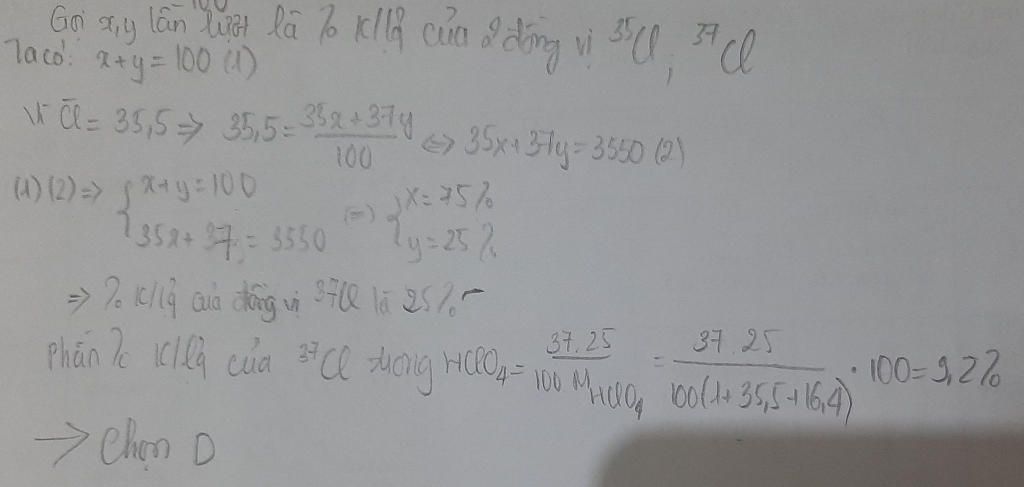 Gọi x,y lần lượt là % K/lg của 2 đồng vị ³⁵Cl, ³⁷Cl
Ta có: x+y=100 (1)
Vì C̅l̅ = 35,5 => 35,5 = (35x+37y)/100 <=> 35x+37y=3550 (2)
(1)(2)=> { x+y=100 (=) { x=75%
35x+37y = 3550 y=25%
=> % K/lg của đồng vị ³⁷Cl là 25%
phần % K/lg của ³⁷Cl trong HClO₄ = 37.25/(100 M HClO₄) = 37.25/(100(1+35,5+16.4)) . 100 = 9,2%
-> Chọn D